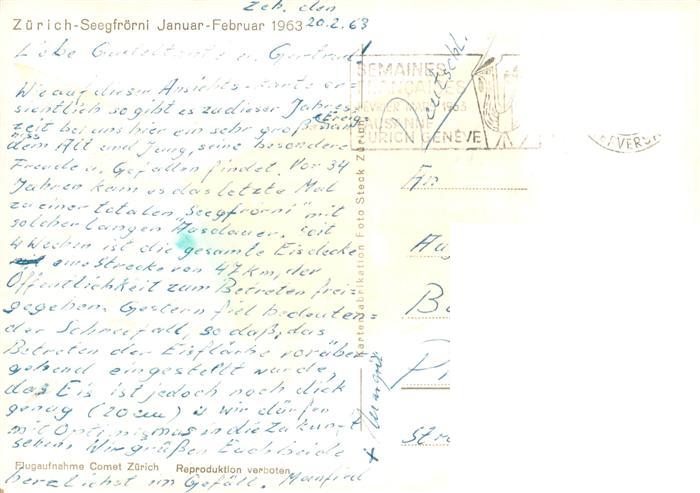 Zch. den
Zürich-Seegfrörni Januar-Februar 1963 20.2.63
Liebe
Wie auf dieser Ansichtskarte er=
sichtlich so gibt es zu dieser Jahres=
zeit bei uns hier ein sehr großes Ereig=
niss an
dem Alt und Jung, seine besondere
Freude u. Gefallen findet. Vor 34
Jahren kam es das letzte Mal
zu einer totalen "Seegfrörni" mit
solcher langen Ausdauer. Seit
4 Wochen ist die gesamte Eisdecke
eine Strecke von 47 km, der
Öffentlichkeit zum Betreten frei=
gegeben. Gestern fiel bedeuten=
der Schneefall, so daß, das
Betreten der Eisfläche vorüber
gehend eingestellt wurde,
das Eis ist jedoch noch dick
genug (20 cm) u wir dürfen
mit Optimismus in die Zukunft
sehen. Wir grüßen Euch beide
Flugaufnahme Comet Zürich Reproduktion verboten
herzlichst im Manfred
+ Margrit
Kartenfabrikation Foto Steck Zürich
SEMAINES
FRANÇAISES
1963
LAUSANNE
ZURICH GENÈVE
Deutschl.
An